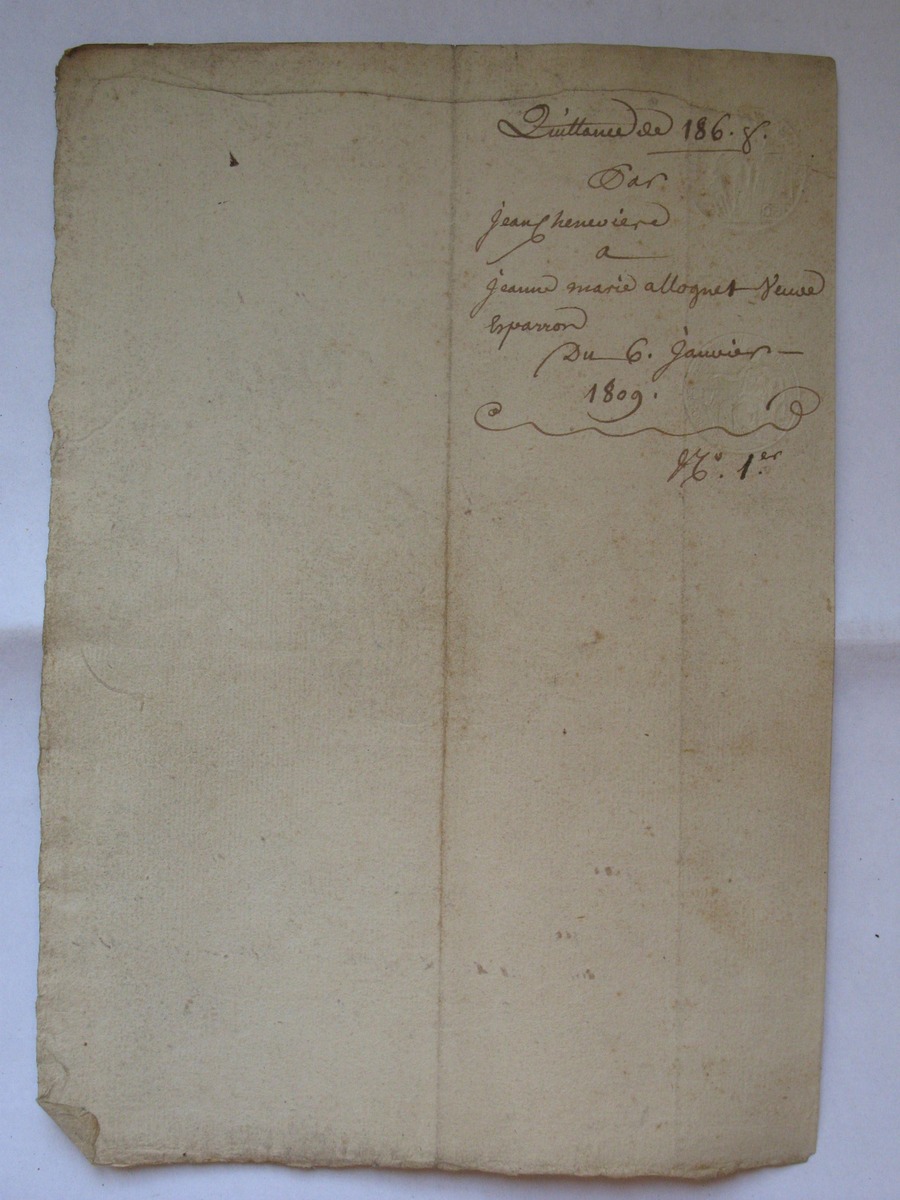 Quittance de 186. F.
Par
jean Cheneviere
a
jeanne marie allognet Veuve
Esparron
Du 6. janvier
1809.
N.° 1.er